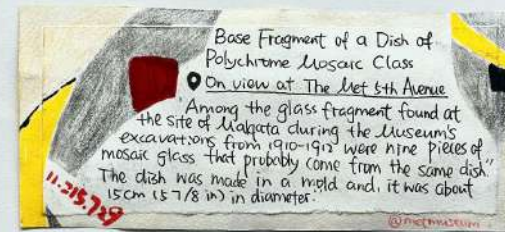 Base Fragment of a Dish of
Polychrome Mosaic Glass
On view at The Met 5th Avenue
"Among the glass fragment found at
the site of Malqata during the Museum's
excavations from 1910-1912 were nine pieces of
mosaic glass that probably come from the same dish."
The dish was made in a mold and, it was about
15cm (5 7/8 in) in diameter.
11.215.739
@metmuseum